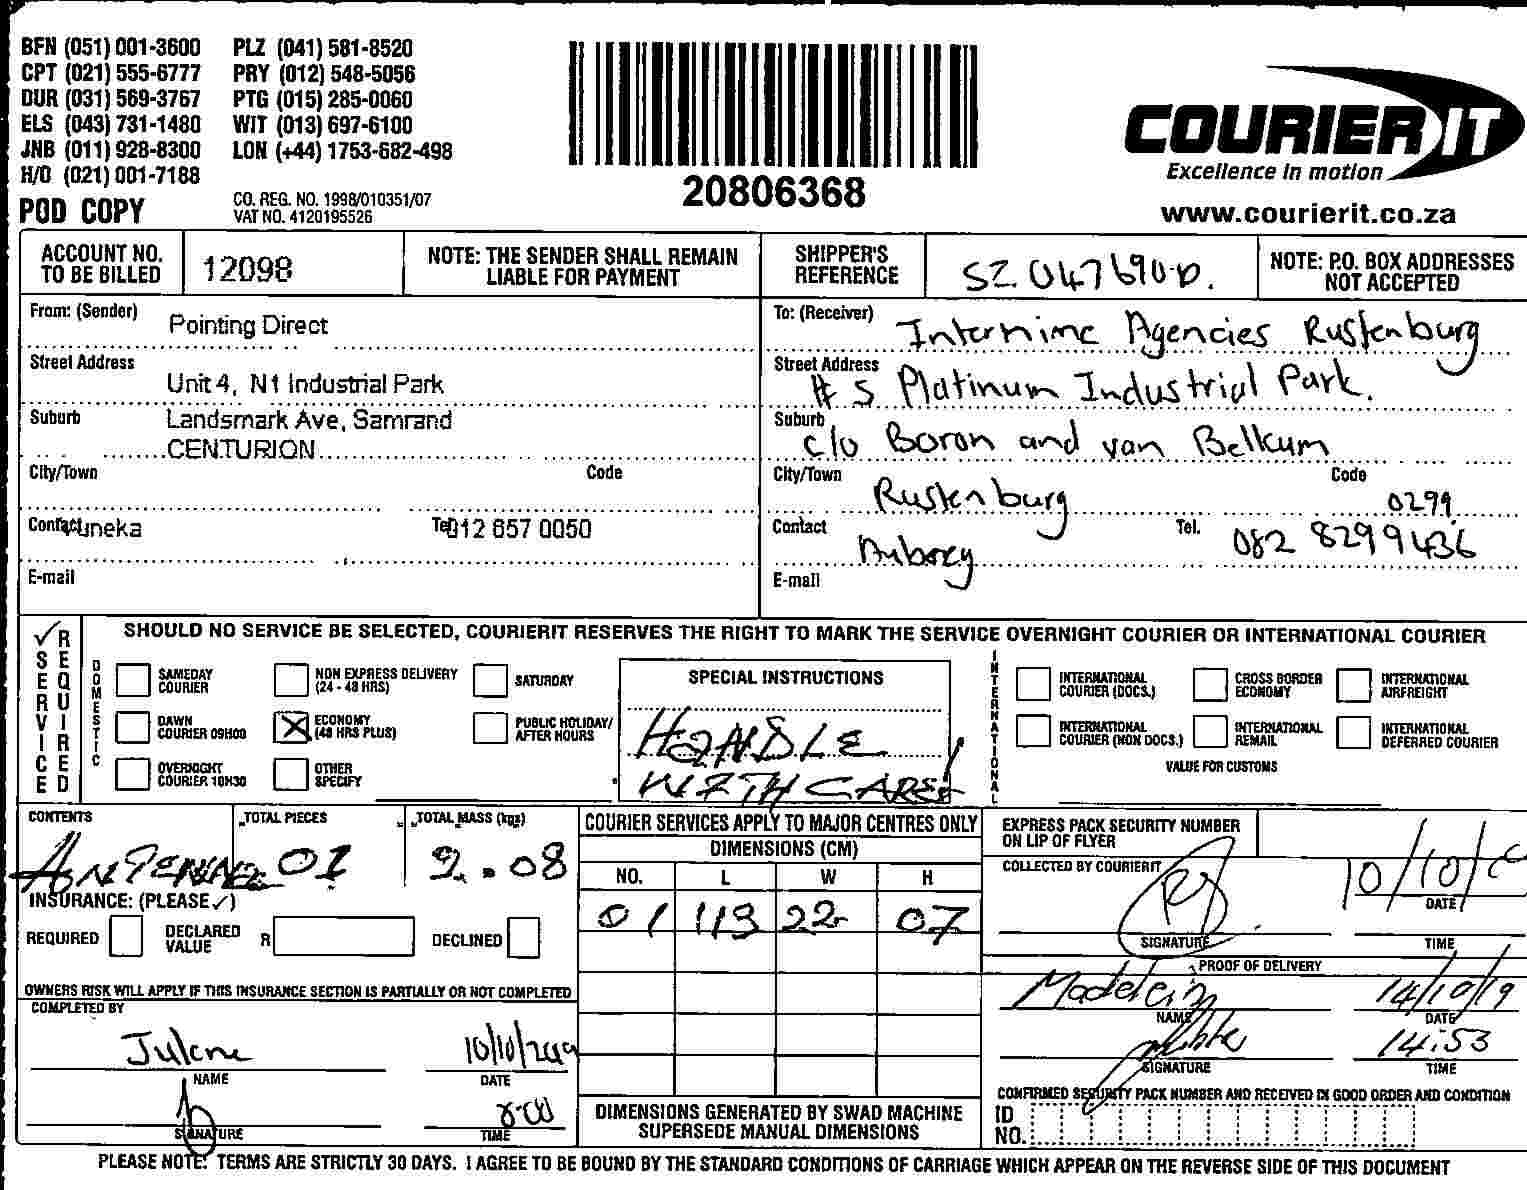 BFN (051) 001-3600 PLZ (041) 581-8520
CPT (021) 555-6777 PRY (012) 548-5056
DUR (031) 569-3767 PTG (015) 285-0060
ELS (043) 731-1480 WIT (013) 697-6100
JNB (011) 928-8300 LON (+44) 1753-682-498
H/O (021) 001-7188
POD COPY
CO. REG. NO. 1998/010351/07
VAT NO. 4120195526
20806368
COURIER IT
Excellence in motion
www.courierit.co.za
ACCOUNT NO. TO BE BILLED
12098
NOTE: THE SENDER SHALL REMAIN LIABLE FOR PAYMENT
SHIPPER'S REFERENCE
SZ 047690-D.
NOTE: P.O. BOX ADDRESSES NOT ACCEPTED
From: (Sender) Pointing Direct
Street Address
Unit 4, N1 Industrial Park
Suburb Landsmark Ave, Samrand
CENTURION
City/Town Code
Contact uneka Tel 012 657 0050
E-mail
To: (Receiver) Agencies Rustenburg
Street Address
# 5 Platinum Industrial Park.
Suburb
c/o Boron and van Belkum
City/Town Rustenburg Code 0299
Contact Tel. 082 8299436
E-mail
SERVICE REQUIRED
SHOULD NO SERVICE BE SELECTED, COURIERIT RESERVES THE RIGHT TO MARK THE SERVICE OVERNIGHT COURIER OR INTERNATIONAL COURIER
DOMESTIC
SAMEDAY COURIER
NON EXPRESS DELIVERY (24 - 48 HRS)
SATURDAY
DAWN COURIER 09H00
ECONOMY (48 HRS PLUS)
PUBLIC HOLIDAY/ AFTER HOURS
OVERNIGHT COURIER 10H30
OTHER SPECIFY
SPECIAL INSTRUCTIONS
HANDLE
WITH CARE!
INTERNATIONAL
INTERNATIONAL COURIER (DOCS.)
CROSS BORDER ECONOMY
INTERNATIONAL AIRFREIGHT
INTERNATIONAL COURIER (NON DOCS.)
INTERNATIONAL REMAIL
INTERNATIONAL DEFERRED COURIER
VALUE FOR CUSTOMS
CONTENTS TOTAL PIECES TOTAL MASS (kgs)
01 2.08
INSURANCE: (PLEASE ✓)
REQUIRED DECLARED VALUE R DECLINED
OWNERS RISK WILL APPLY IF THIS INSURANCE SECTION IS PARTIALLY OR NOT COMPLETED
COMPLETED BY
Julene 10/10/2019
NAME DATE
8:00
SIGNATURE TIME
COURIER SERVICES APPLY TO MAJOR CENTRES ONLY
DIMENSIONS (CM)
NO. L W H
01 113 22 07
DIMENSIONS GENERATED BY SWAD MACHINE SUPERSEDE MANUAL DIMENSIONS
EXPRESS PACK SECURITY NUMBER ON LIP OF FLYER
COLLECTED BY COURIERIT
10/10/
DATE
SIGNATURE TIME
PROOF OF DELIVERY
Madelein 14/10/19
NAME DATE
14:53
SIGNATURE TIME
CONFIRMED SECURITY PACK NUMBER AND RECEIVED IN GOOD ORDER AND CONDITION
ID NO.
PLEASE NOTE: TERMS ARE STRICTLY 30 DAYS. I AGREE TO BE BOUND BY THE STANDARD CONDITIONS OF CARRIAGE WHICH APPEAR ON THE REVERSE SIDE OF THIS DOCUMENT